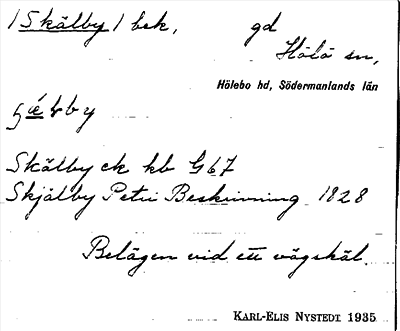 /Skälby/ bek, gd
Hölö sn,
Hölebo hd, Södermanlands län
Skälby ek kb G 67
Skjälby Petri Beskrivning 1828
Belägen vid ett vägskäl.
KARL-ELIS NYSTEDT 1935